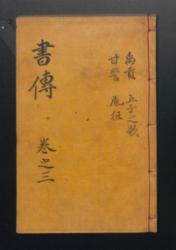 禹貢 五子之歌
甘誓 胤征
書傳 卷之三